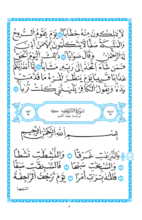 لَا يَمْلِكُونَ مِنْهُ خِطَابًا يَوْمَ يَقُومُ الرُّوحُ
وَالْمَلَائِكَةُ صَفًّا لَا يَتَكَلَّمُونَ إِلَّا مَنْ أَذِنَ
لَهُ الرَّحْمَنُ وَقَالَ صَوَابًا ذَلِكَ الْيَوْمُ الْحَقُّ
فَمَنْ شَاءَ اتَّخَذَ إِلَى رَبِّهِ مَآبًا إِنَّا أَنْذَرْنَاكُمْ
عَذَابًا قَرِيبًا يَوْمَ يَنْظُرُ الْمَرْءُ مَا قَدَّمَتْ
يَدَاهُ وَيَقُولُ الْكَافِرُ يَا لَيْتَنِي كُنْتُ تُرَابًا
بِسْمِ اللَّهِ الرَّحْمَنِ الرَّحِيمِ
وَالنَّازِعَاتِ غَرْقًا وَالنَّاشِطَاتِ نَشْطًا
وَالسَّابِحَاتِ سَبْحًا فَالسَّابِقَاتِ سَبْقًا
فَالْمُدَبِّرَاتِ أَمْرًا يَوْمَ تَرْجُفُ الرَّاجِفَةُ
تَتْبَعُهَا